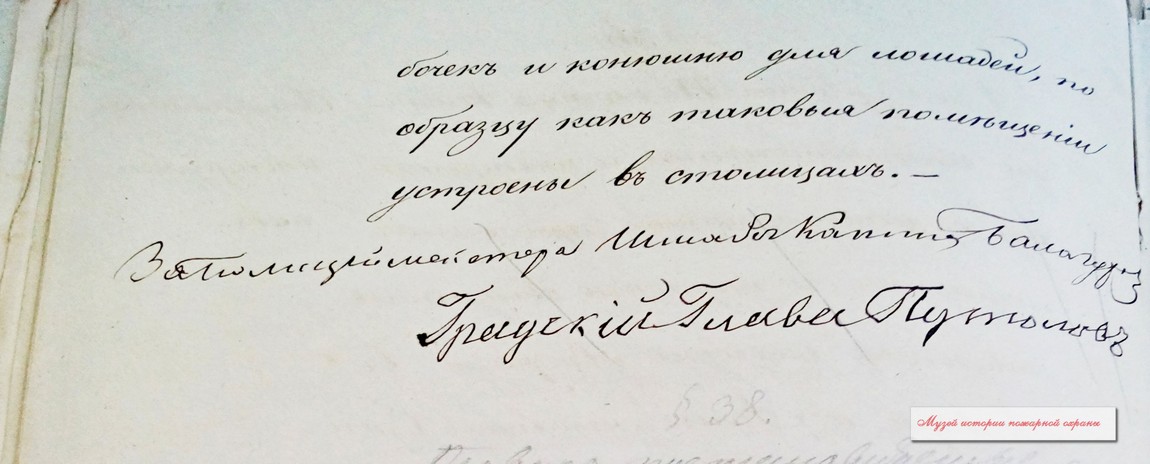 бочекъ и конюшню для лошадей, по
образцу какъ таковыя помѣщенія
устроены въ столицахъ. —
За Полицiймейстера Штабсъ Капитанъ
Градскій Глава Путоловъ
§ 38.
Музей истории пожарной охраны